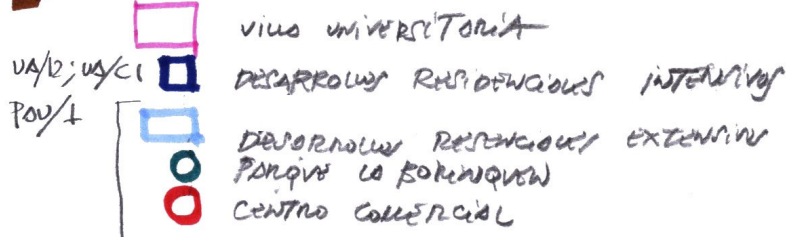 VILLA UNIVERSITARIA
UA/12; UA/C1 DESARROLLOS RESIDENCIALES INTENSIVOS
PAU/1
DESARROLLOS RESENCIALES EXTENSIVOS
PARQUE LA BORINQUEN
CENTRO COMERCIAL